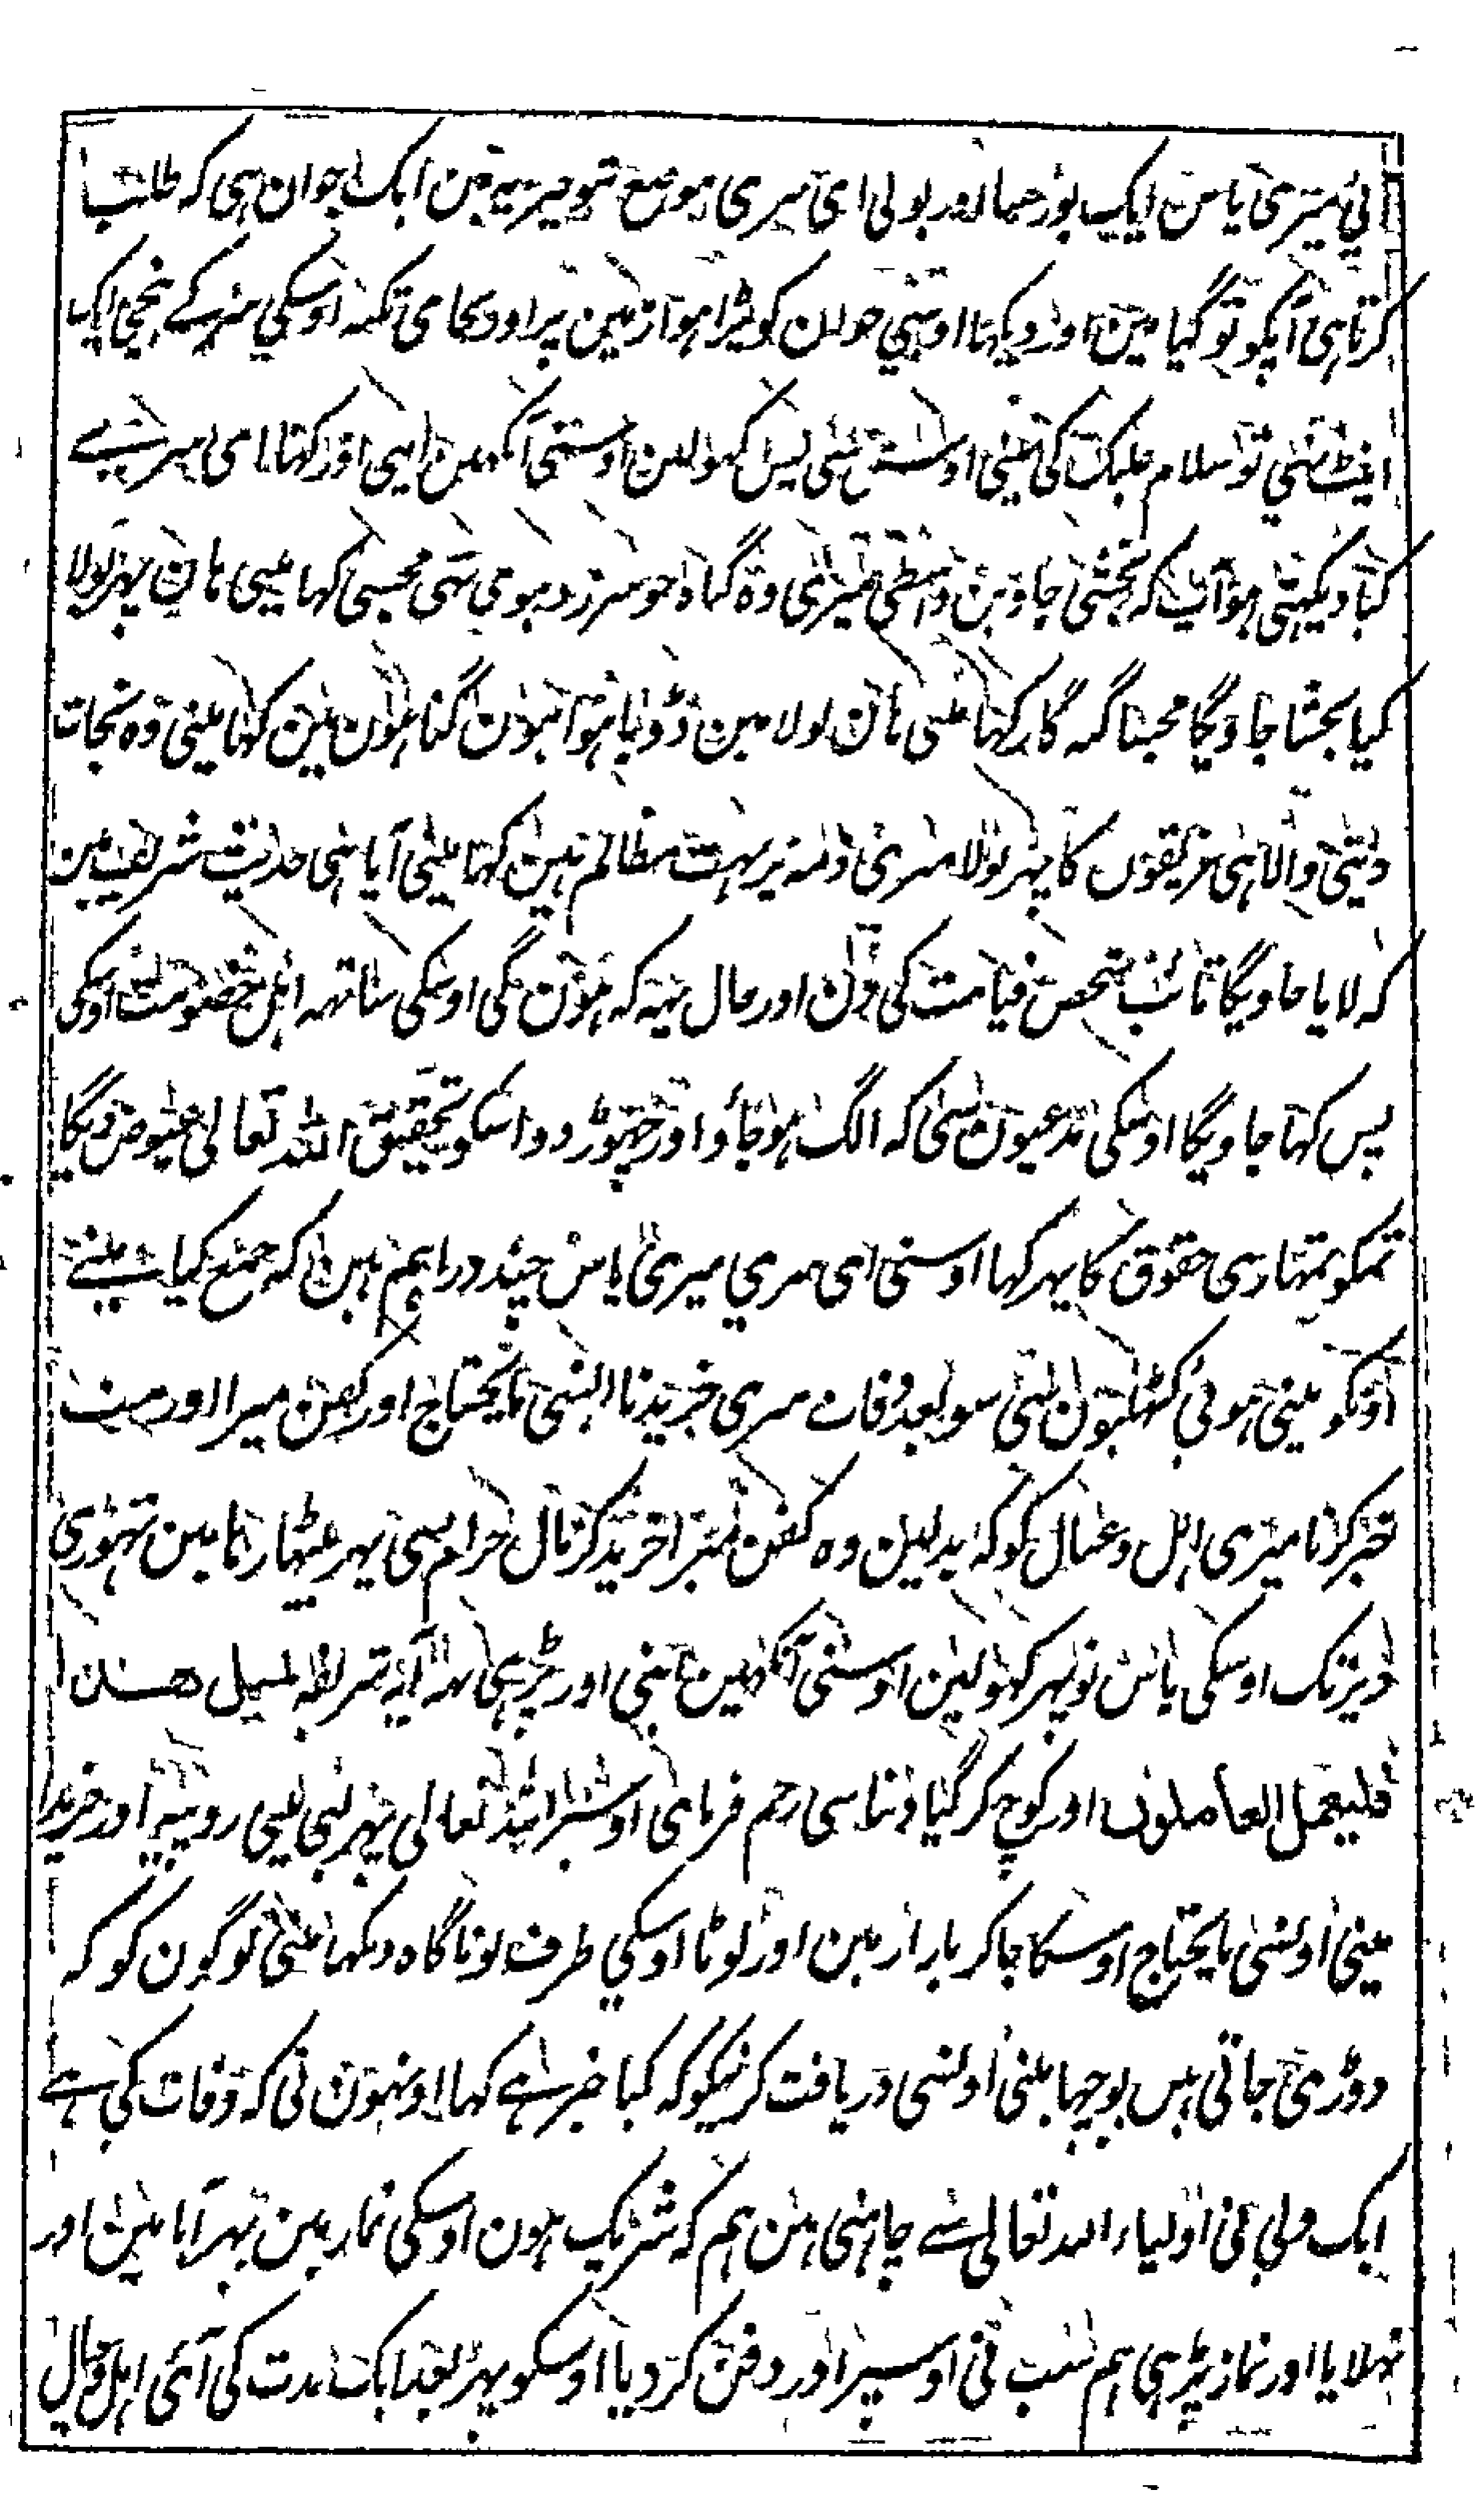 آئی میری پاس ایک بوڑھیا اور بولی ای سری موضع شونیزیہ مین ایک جوان ہی کہ طلب
کرتا ہی آپکو تو گیا مین اور دیکہا اوسنی جوان کو پڑا ہوا زمین پر اور بجای تکیہ اوسکی سر کے نیچی ایک
اینٹ تہی تو سلام علیک کی مینی اوسے پس کہولین اوسنی آنکہین اپنی اور کہا ای سرے
کیا دیکہتی ہو آپ کہ بخشی جاوین واسطی میری وہ گناہ جو سرزد ہوی تہی مجہسی کہا مینی ہان پہر بولا
کیا بخشا جاویگا مجہسا گنہگار کہا مینی ہان بولا مین ڈوبا ہوا ہون گناہون مین کہا مینی وہ نجات
دینی والا ہی غریقون کا پہر بولا میری ذمہ پر بہت مظالم ہین کہا مینی آیا ہی حدیث شریف مین
کہ لایا جاویگا تائب شخص قیامت کی دن اور حال یہ کہ ہون گی اوسکی ساتہہ اہل خصومت اوسکی
پس کہا جاویگا اوسکی مدعیون سی کہ الگ ہو جاؤ اور چہوڑ دو اسکو تحقیق اللہ تعالی عوض دیگا
تمکو تمہاری حقوق کا پہر کہا اوسنی ای سری میری پاس چند دراہم ہین کہ جمع کیا ہے مینے
اونکو چنی ہوئی گٹہلیون سی سو بعد وفات میری خریدنا اونسی مایحتاج اور کفن میرا اور مت
خبر کرنا میری اہل و عیال کو کہ بدلین وہ کفن میرا خرید کر مال حرام سی پہر بیٹھا رہا مین تہوڑی
دیر تک اوسکی پاس تو پہر کہولین اوسنی آنکہین اپنی اور پڑہی یہہ آیۃ شریفہ لمثل هذا
فلیعمل العاملون اور کوچ کر گیا دنیا سی رحم فرمای اوسپر اللہ تعالی پہر لی مینی روپیہ اور خریدا
مینی اونسی مایحتاج اوسکا جاکر بازار مین اور لوٹا اوسکی طرف تو ناگاہ دیکہا مینی لوگون کو کہ
دوڑی جاتی ہین پوچہا مینی اونسی دریافت کرنیکو کہ کیا خبر ہے کہا اونہون نی کہ وفات کی ہے
ایک ولی نی اولیاء اللہ تعالی سے چاہتی ہین ہم کہ شریک ہون اوسکی نماز مین پہر آیا مین اور
نہلایا اور نماز پڑہی ہم سب نی اوسپر اور دفن کر دیا اوسکو پہر بعد ایک مدت کی آئی اہل عیال